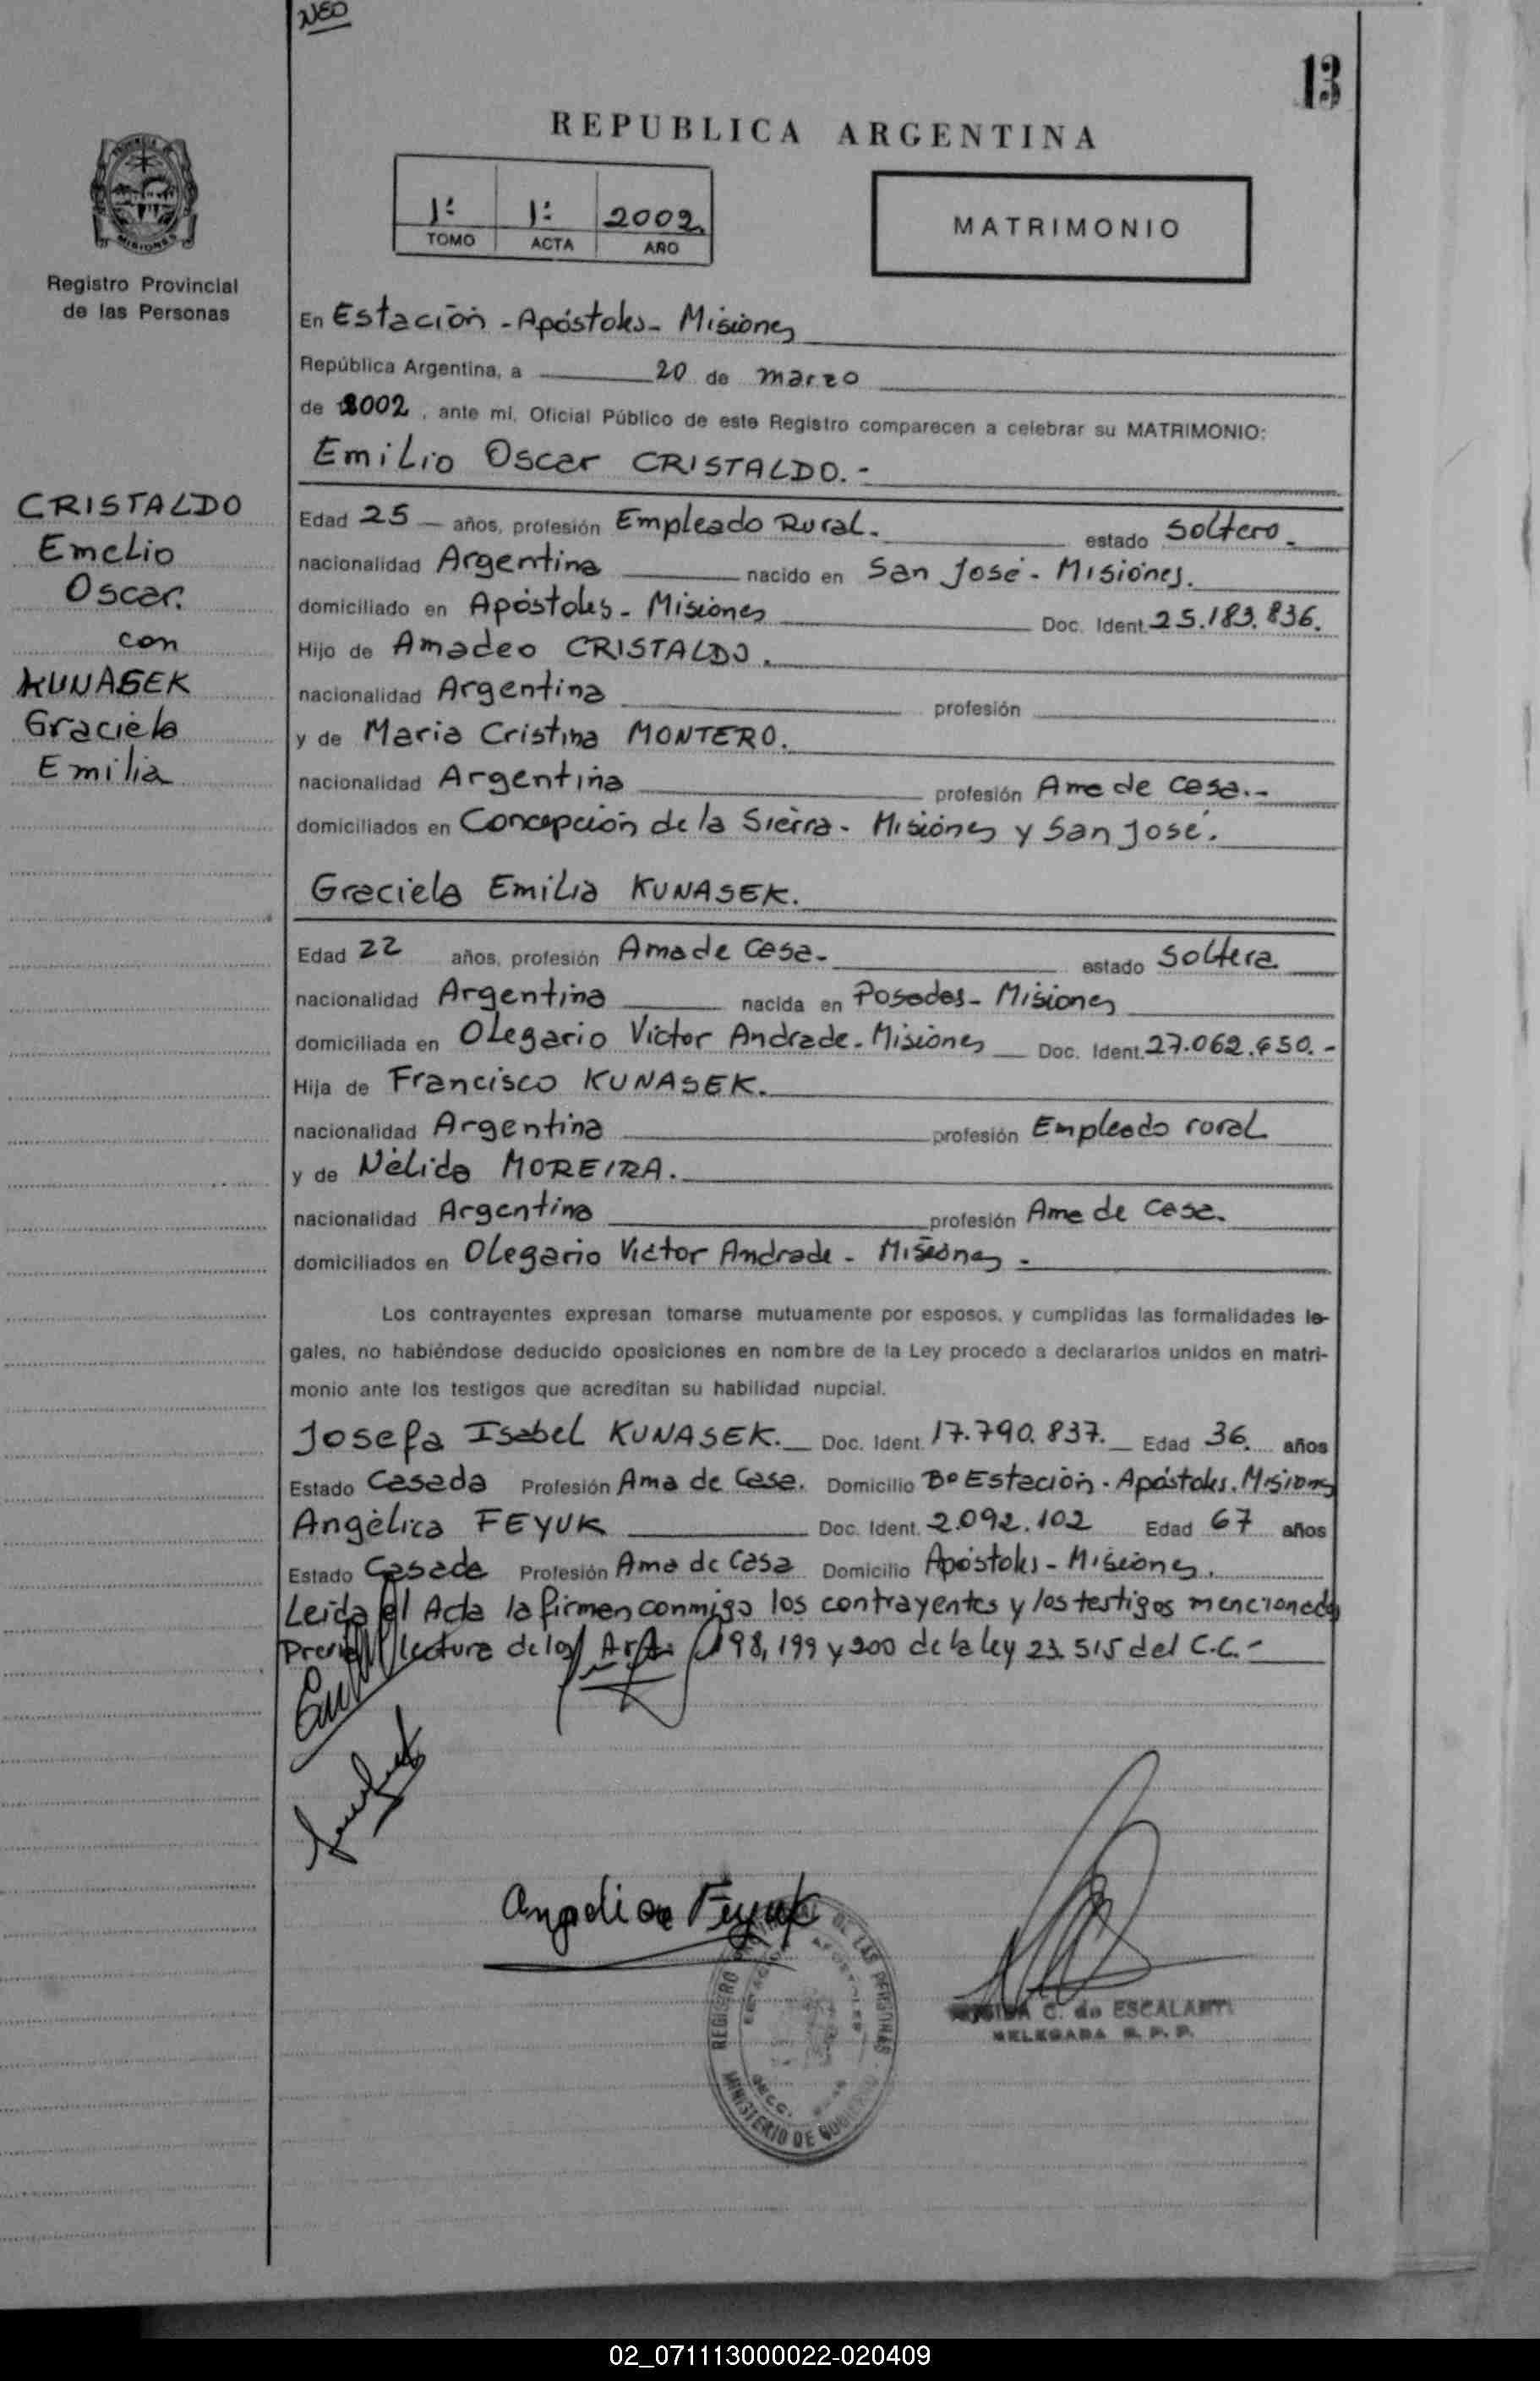 NEO
13
REPUBLICA ARGENTINA
1º 1º 2002
TOMO ACTA AÑO
MATRIMONIO
Registro Provincial
de las Personas
En Estación - Apóstoles - Misiones
República Argentina, a 20 de marzo
de 2002, ante mí, Oficial Público de este Registro comparecen a celebrar su MATRIMONIO:
Emilio Oscar CRISTALDO.-
CRISTALDO
Emelio
Oscar.
con
KUNASEK
Graciela
Emilia
Edad 25 años, profesión Empleado Rural. estado Soltero.
nacionalidad Argentina nacido en San José - Misiones.
domiciliado en Apóstoles - Misiones Doc. Ident. 25.183.836.
Hijo de Amadeo CRISTALDO.
nacionalidad Argentina profesión
y de Maria Cristina MONTERO.
nacionalidad Argentina profesión Ama de Casa.-
domiciliados en Concepción de la Sierra - Misiones y San José.
Graciela Emilia KUNASEK.
Edad 22 años, profesión Ama de Casa. estado Soltera
nacionalidad Argentina nacida en Posadas - Misiones
domiciliada en Olegario Victor Andrade - Misiones Doc. Ident. 27.062.650.-
Hija de Francisco KUNASEK.
nacionalidad Argentina profesión Empleado rural
y de Nélida MOREIRA.
nacionalidad Argentina profesión Ama de Casa.
domiciliados en Olegario Victor Andrade - Misiones -
Los contrayentes expresan tomarse mutuamente por esposos, y cumplidas las formalidades le-
gales, no habiéndose deducido oposiciones en nombre de la Ley procedo a declararlos unidos en matri-
monio ante los testigos que acreditan su habilidad nupcial.
Josefa Isabel KUNASEK. Doc. Ident. 17.790.837. Edad 36 años
Estado Casada Profesión Ama de Casa. Domicilio Bº Estación - Apóstoles. Misiones
Angélica FEYUK Doc. Ident. 2.092.102 Edad 67 años
Estado Casada Profesión Ama de Casa Domicilio Apóstoles - Misiones.
Leida el Acta la firman conmigo los contrayentes y los testigos mencionados
Previa lectura de los Art. 198, 199 y 200 de la ley 23.515 del C.C.-
Angelica Feyuk
REGISTRO PROVINCIAL DE LAS PERSONAS
MINISTERIO DE GOBIERNO
C. de ESCALANTE
DELEGADA R. P. P.
02_071113000022-020409